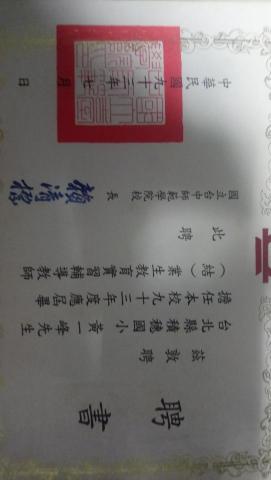 聘書
茲敦聘
台北縣積穗國小黃一峰先生
擔任本校九十三年度應屆畢
（結）業生教育實習輔導教師
此聘
國立台中師範學院校長 賴清標
中華民國九十三年七月 日